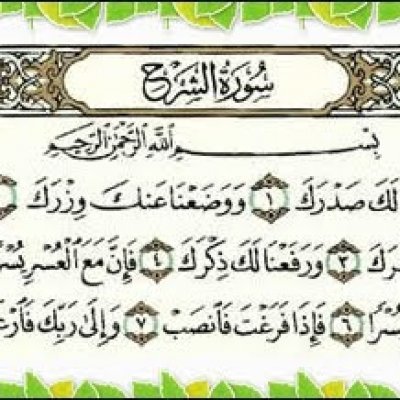 سُورَةُ الشَّرْحِ
بِسْمِ اللَّهِ الرَّحْمَٰنِ الرَّحِيمِ
لَكَ صَدْرَكَ ١ وَوَضَعْنَا عَنكَ وِزْرَكَ
رَكَ ٣ وَرَفَعْنَا لَكَ ذِكْرَكَ ٤ فَإِنَّ مَعَ ٱلْعُسْرِ يُسْرً
سْرًا ٦ فَإِذَا فَرَغْتَ فَٱنصَبْ ٧ وَإِلَىٰ رَبِّكَ فَٱرْغَ